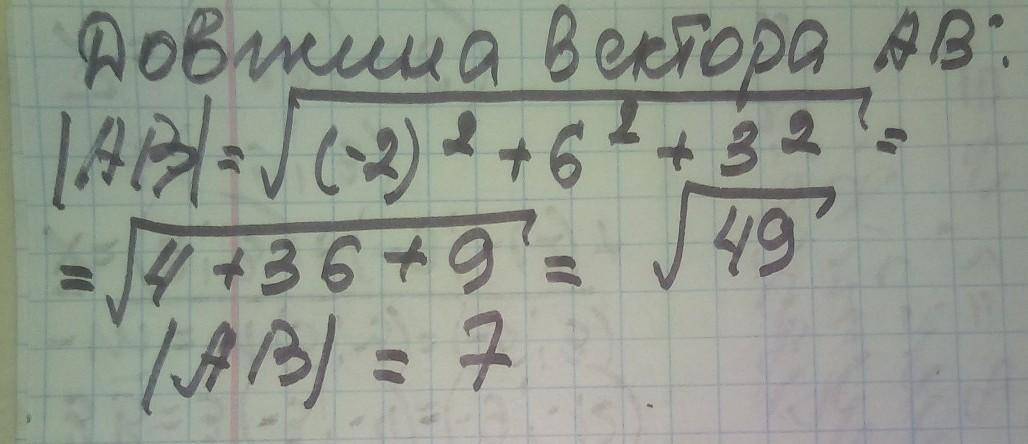 Довжина вектора AB:
|AB| = √(-2)² + 6² + 3² =
= √4 + 36 + 9 = √49
|AB| = 7